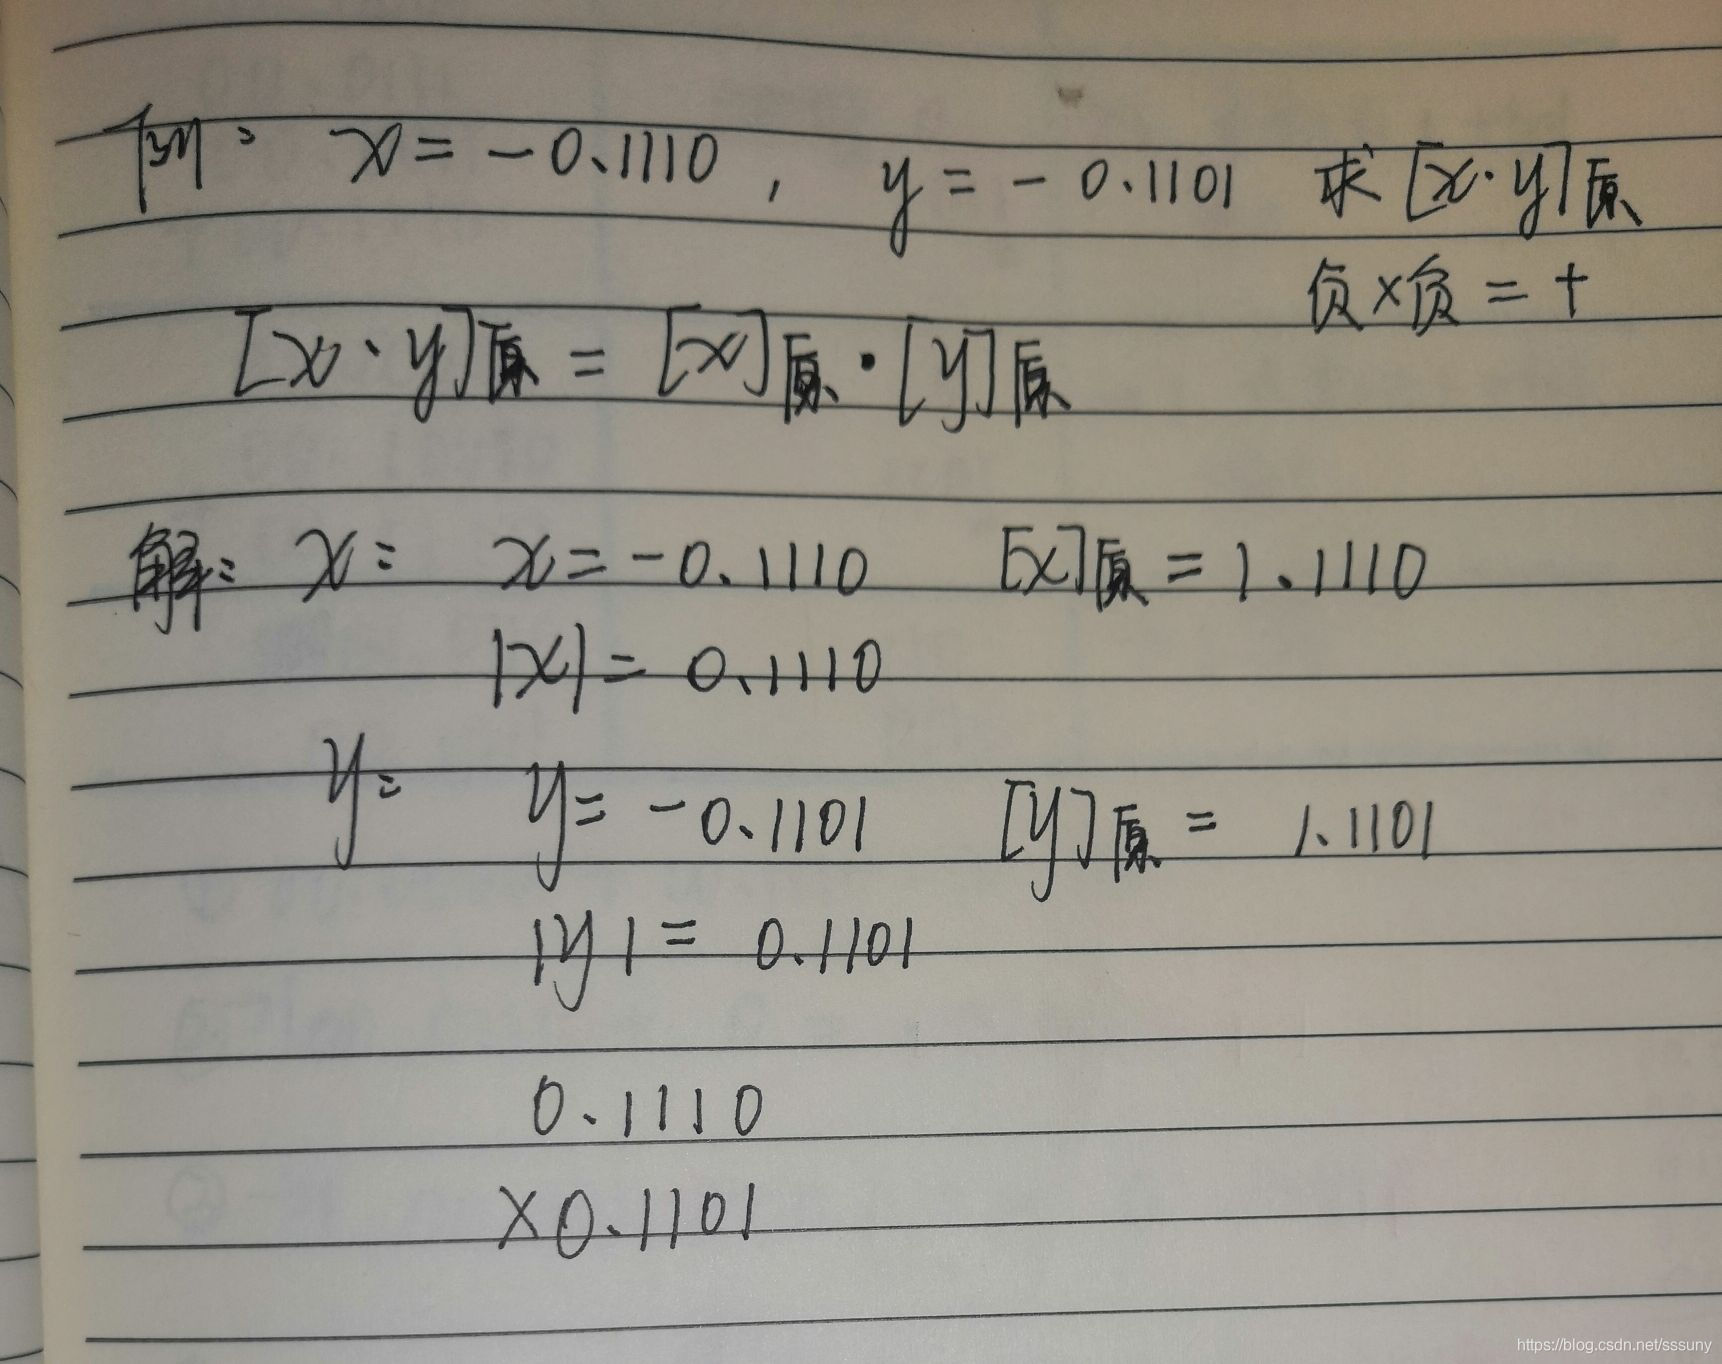 例: x = -0.1110 , y = -0.1101 求[x·y]原
负×负=+
[x·y]原 = [x]原·[y]原
解: x: x = -0.1110 [x]原 = 1.1110
|x| = 0.1110
y: y = -0.1101 [y]原 = 1.1101
|y| = 0.1101
0.1110
×0.1101
https://blog.csdn.net/sssuny